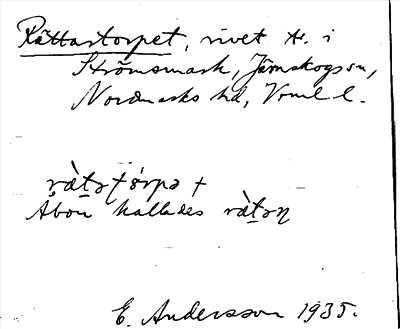 Råttastorpet, rivet tr. i
Strömsmark, Järnskogs sn,
Nordmarks hd, Vrml l.
Åbon kallades
E. Andersson 1935.